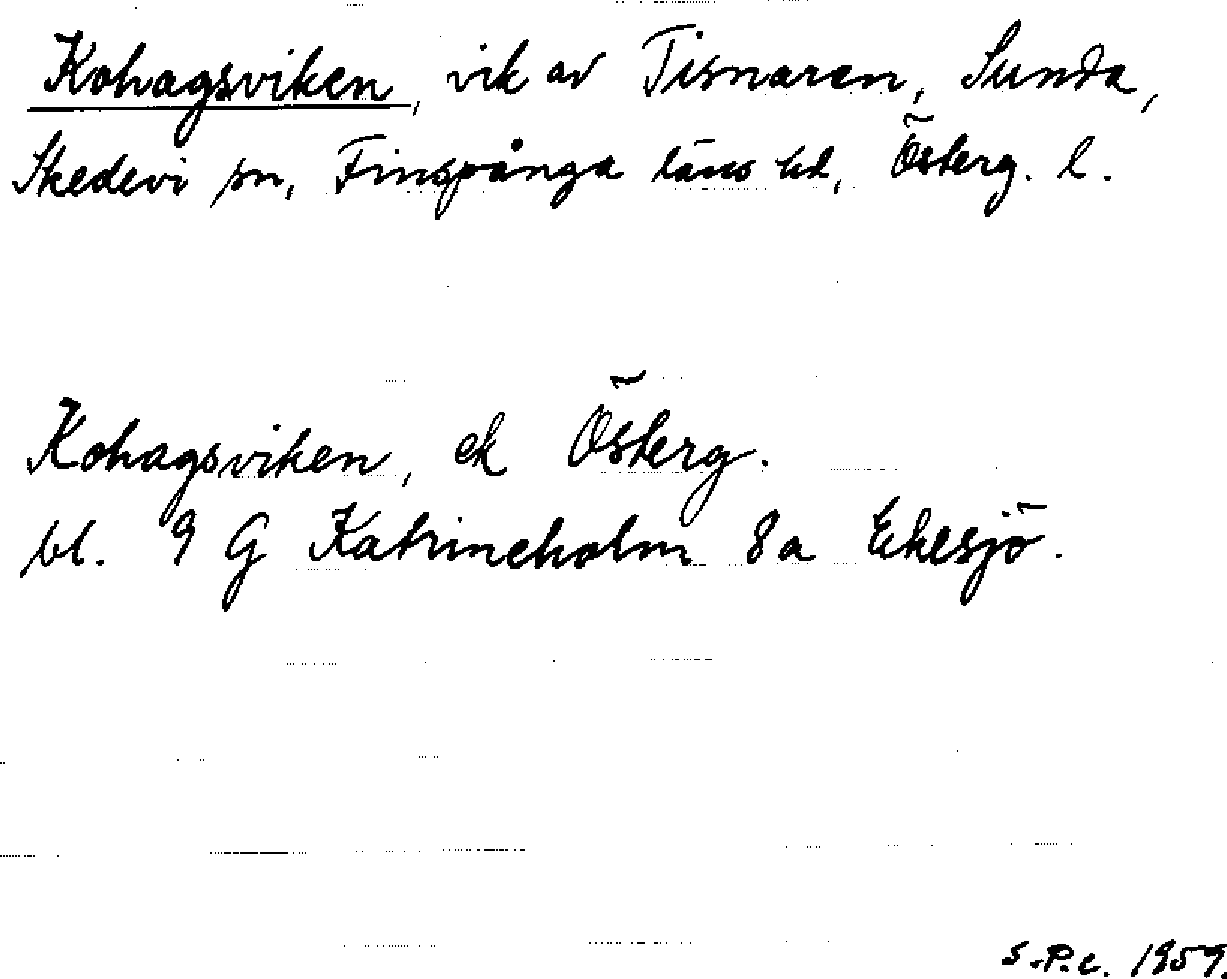 Kohagsviken, vik av Tisnaren, Sunda,
Skedevi sn, Finspånga läns hd, Österg. l.
Kohagsviken, ek Österg.
bl. 9 G Katrineholm 8a Ekesjö.
S.P.c. 1959.